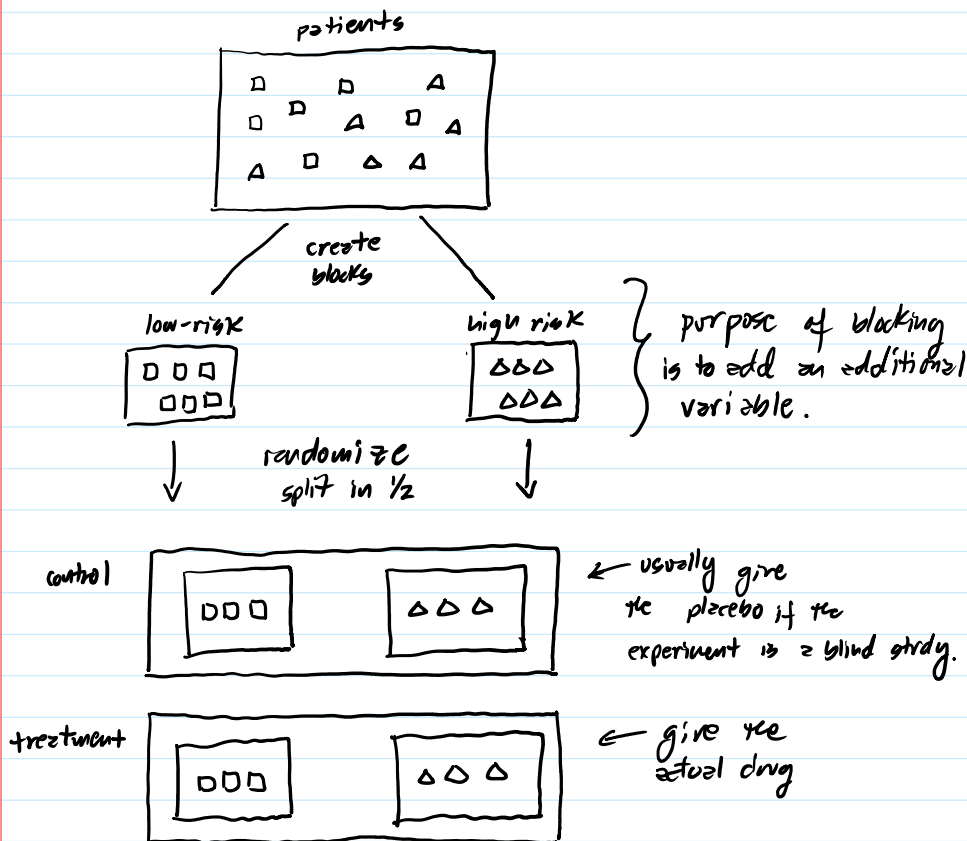 patients
create
blocks
low-risk
high risk
purpose of blocking
is to add an additional
variable.
randomize
split in 1/2
control
← usually give
the placebo if the
experiment is a blind study.
treatment
← give the
actual drug